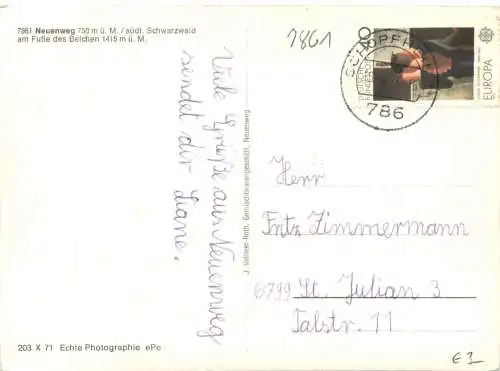 7861 Neuenweg 750 m ü. M. / südl. Schwarzwald
am Fuße des Belchen 1415 m ü. M.
Viele Grüße aus Neuenweg
sendet dir
Liane.
J. Vollmer-Roth, Gemischtwarengeschäft, Neuenweg
203 X 71 Echte Photographie ePe
7861
SCHOPFHEIM
786
DEUTSCHE
BUNDESPOST
EUROPA
Herr
Fritz Zimmermann
6799 St. Julian 3
Talstr. 11
€ 1